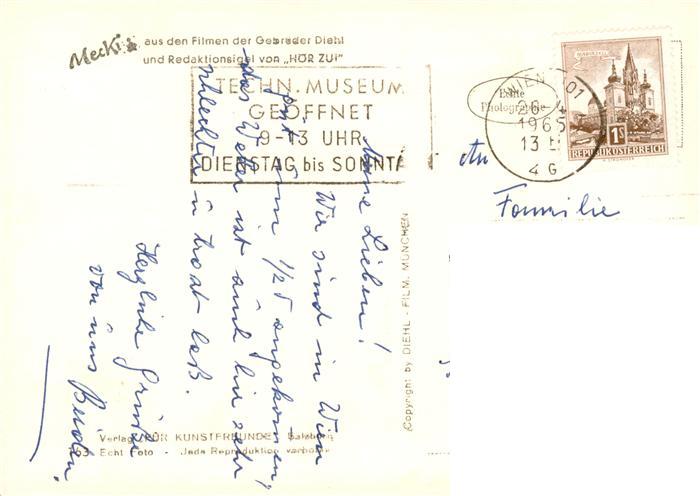 Mecki aus den Filmen der Gebrüder Diehl
und Redaktionsigel von „HÖR ZU!"
TECHN. MUSEUM
GEÖFFNET
9-13 UHR
DIENSTAG bis SONNTA
WIEN 101
26.
1965
13
4 G
Echte
Photographie
MARIAZELL
1S
REPUBLIK ÖSTERREICH
An
Familie
Meine Lieben!
Wir sind in Wien
gut um 1/2 5 angekommen,
das Wetter ist auch hier sehr
schlecht u. trost los.
Herzliche Grüße
von uns Beiden.
Copyright by DIEHL - FILM, MÜNCHEN
Verlag FÜR KUNSTFREUNDE, Salzburg
Echt Foto - Jede Reproduktion verboten